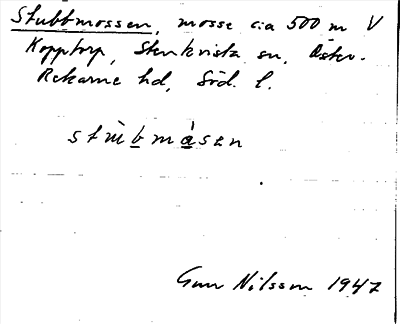 Stubbmossen, mosse c:a 500 m V
Kopptorp, Stenkvista sn, Öster-
Rekarne hd, Söd. l.
stùbmåsen
Gun Nilsson 1947